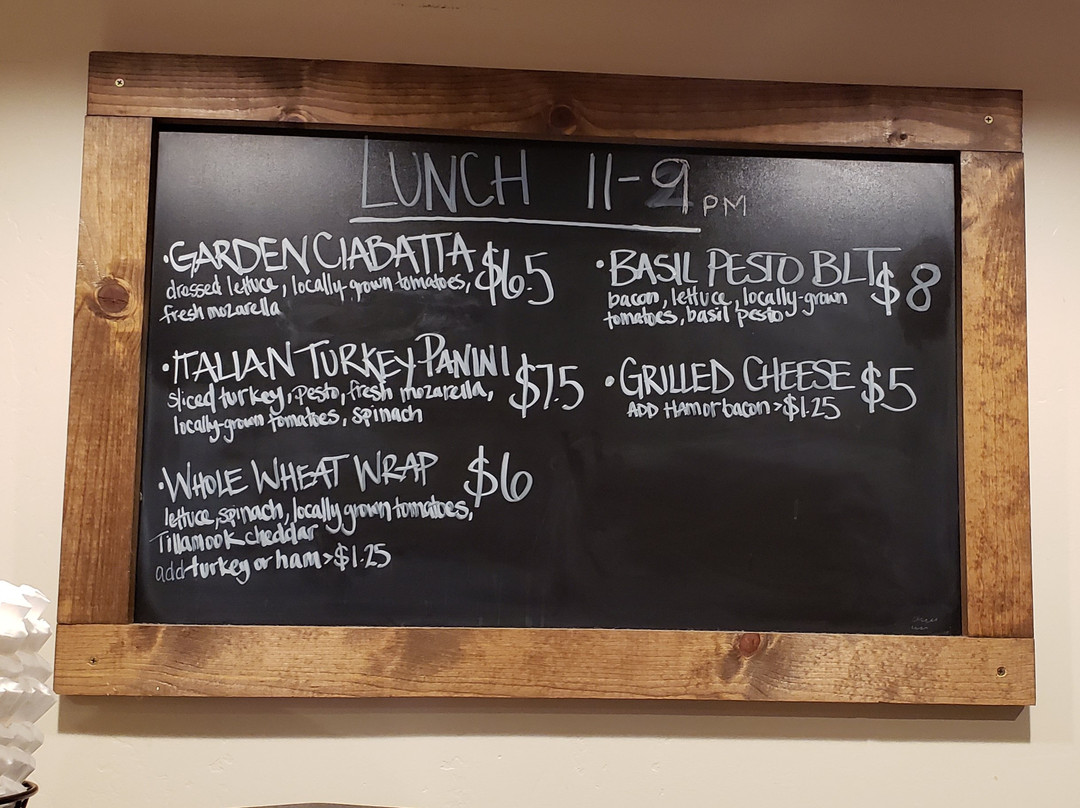 LUNCH 11-9 PM
·GARDEN CIABATTA $6.5
dressed lettuce, locally-grown tomatoes,
fresh mozarella
·ITALIAN TURKEY PANINI $7.5
sliced turkey, pesto, fresh mozarella,
locally-grown tomatoes, spinach
·WHOLE WHEAT WRAP $6
lettuce, spinach, locally grown tomatoes,
Tillamook cheddar
add turkey or ham > $1.25
·BASIL PESTO BLT $8
bacon, lettuce, locally-grown
tomatoes, basil pesto
·GRILLED CHEESE $5
ADD HAM or bacon > $1.25